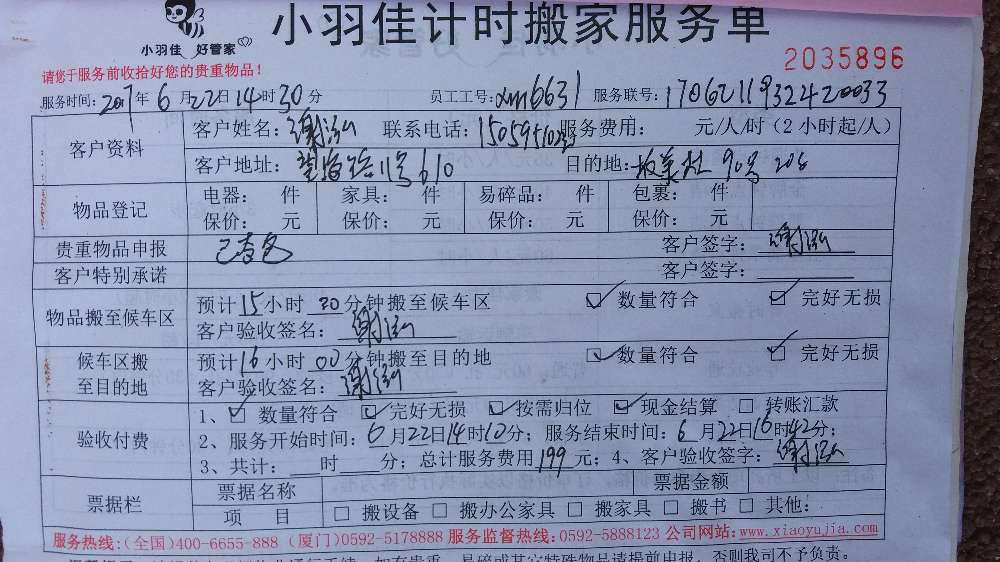 小羽佳 好管家
小羽佳计时搬家服务单
2035896
请您于服务前收拾好您的贵重物品！
服务时间：2017年6月22日14时30分 员工工号：xm6631 服务联号：1706211932420033
客户资料
客户姓名： 联系电话： 服务费用： 元/人/时（2小时起/人）
客户地址：望海路11号610 目的地：板美社90号208
物品登记
电器： 件 家具： 件 易碎品： 件 包裹： 件
保价： 元 保价： 元 保价： 元 保价： 元
贵重物品申报 已查包 客户签字：
客户特别承诺 客户签字：
物品搬至候车区
预计15小时30分钟搬至候车区 ☑数量符合 ☑完好无损
客户验收签名：
候车区搬至目的地
预计16小时00分钟搬至目的地 ☑数量符合 ☑完好无损
客户验收签名：
验收付费
1、☑数量符合 ☑完好无损 ☑按需归位 ☑现金结算 □转账汇款
2、服务开始时间：6月22日14时10分；服务结束时间：6月22日16时42分；
3、共计： 时 分；总计服务费用199元；4、客户验收签字：
票据栏
票据名称 票据金额
项 目 □搬设备 □搬办公家具 □搬家具 □搬书 □其他：
服务热线：（全国）400-6655-888（厦门）0592-5178888 服务监督热线：0592-5888123 公司网站：www.xiaoyujia.com
易碎或其它特殊物品请提前申报，否则我司不予负责。